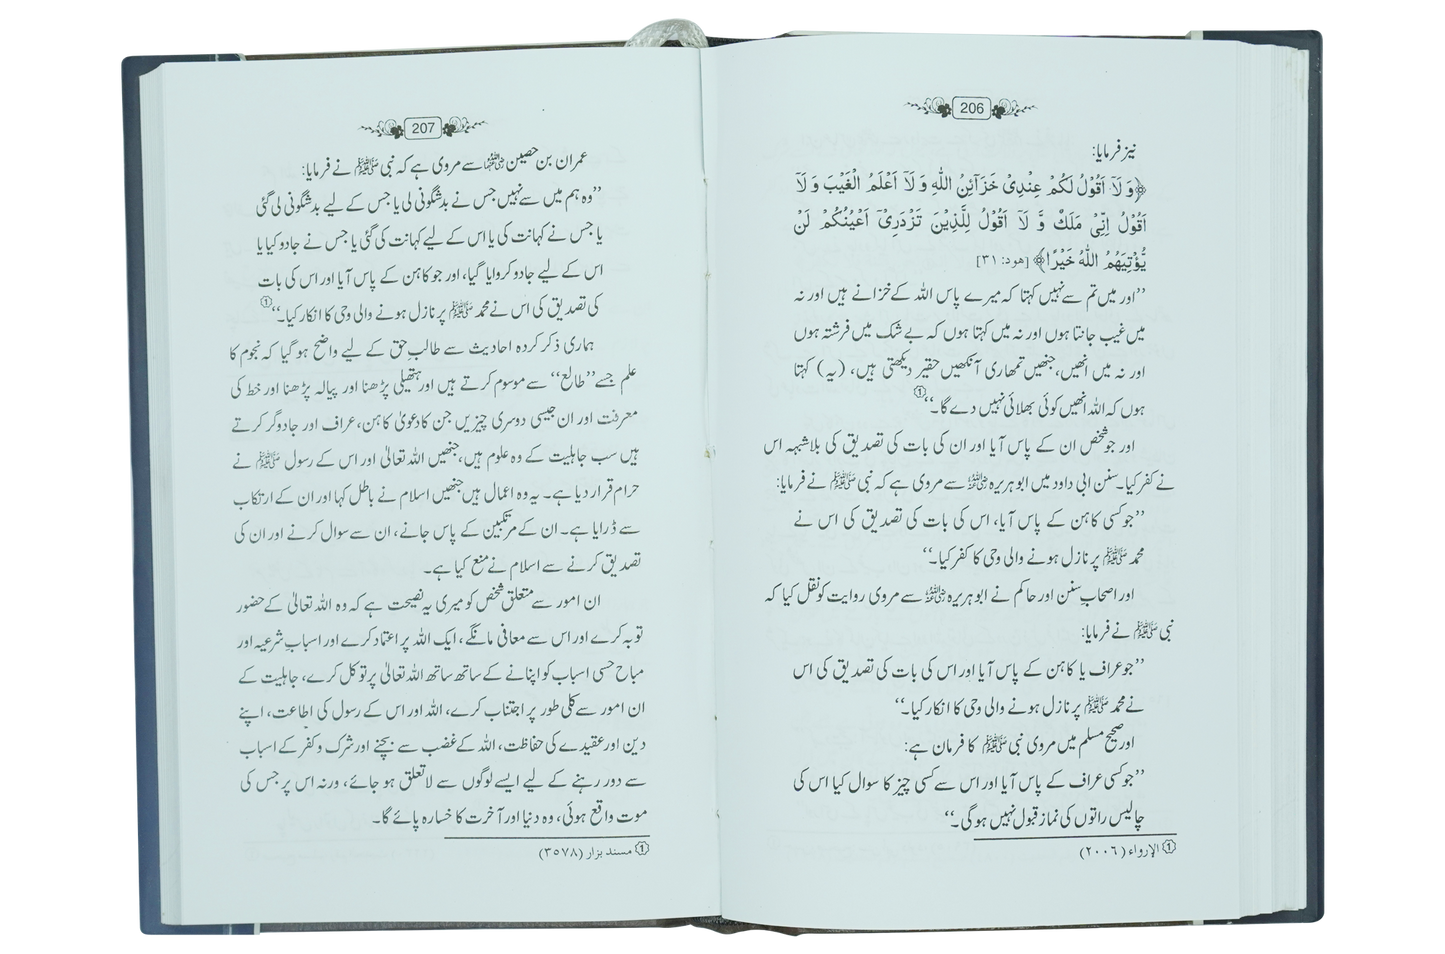 206
نیز فرمایا:
﴿وَ لَاۤ اَقُوْلُ لَكُمْ عِنْدِیْ خَزَآىِٕنُ اللّٰهِ وَ لَاۤ اَعْلَمُ الْغَیْبَ وَ لَاۤ
اَقُوْلُ اِنِّیْ مَلَكٌ وَّ لَاۤ اَقُوْلُ لِلَّذِیْنَ تَزْدَرِیْۤ اَعْیُنُكُمْ لَنْ
یُّؤْتِیَهُمُ اللّٰهُ خَیْرًا﴾ [هود: ٣١]
’’اور میں تم سے نہیں کہتا کہ میرے پاس اللہ کے خزانے ہیں اور نہ
میں غیب جانتا ہوں اور نہ میں کہتا ہوں کہ بے شک میں فرشتہ ہوں
اور نہ میں انھیں، جنھیں تمھاری آنکھیں حقیر دیکھتی ہیں، (یہ) کہتا
ہوں کہ اللہ انھیں کوئی بھلائی نہیں دے گا۔‘‘①
اور جو شخص ان کے پاس آیا اور ان کی بات کی تصدیق کی بلاشبہہ اس
نے کفر کیا۔ سنن ابی داود میں ابو ہریرہ رضی اللہ عنہ سے مروی ہے کہ نبی ﷺ نے فرمایا:
’’جو کسی کاہن کے پاس آیا، اس کی بات کی تصدیق کی اس نے
محمد ﷺ پر نازل ہونے والی وحی کا کفر کیا۔‘‘
اور اصحابِ سنن اور حاکم نے ابو ہریرہ رضی اللہ عنہ سے مروی روایت کو نقل کیا کہ
نبی ﷺ نے فرمایا:
’’جو عراف یا کاہن کے پاس آیا اور اس کی بات کی تصدیق کی اس
نے محمد ﷺ پر نازل ہونے والی وحی کا انکار کیا۔‘‘
اور صحیح مسلم میں مروی نبی ﷺ کا فرمان ہے:
’’جو کسی عراف کے پاس آیا اور اس سے کسی چیز کا سوال کیا اس کی
چالیس راتوں کی نماز قبول نہیں ہوگی۔‘‘
① الإرواء (٢٠٠٦)
207
عمران بن حصین رضی اللہ عنہما سے مروی ہے کہ نبی ﷺ نے فرمایا:
’’وہ ہم میں سے نہیں جس نے بدشگونی لی یا جس کے لیے بدشگونی لی گئی
یا جس نے کہانت کی یا اس کے لیے کہانت کی گئی یا جس نے جادو کیا یا
اس کے لیے جادو کروایا گیا، اور جو کاہن کے پاس آیا اور اس کی بات
کی تصدیق کی اس نے محمد ﷺ پر نازل ہونے والی وحی کا انکار کیا۔‘‘①
ہماری ذکر کردہ احادیث سے طالبِ حق کے لیے واضح ہو گیا کہ نجوم کا
علم جسے ’’طالع‘‘ سے موسوم کرتے ہیں اور ہتھیلی پڑھنا اور پیالہ پڑھنا اور خط کی
معرفت اور ان جیسی دوسری چیزیں جن کا دعویٰ کاہن، عراف اور جادوگر کرتے
ہیں سب جاہلیت کے وہ علوم ہیں، جنھیں اللہ تعالیٰ اور اس کے رسول ﷺ نے
حرام قرار دیا ہے۔ یہ وہ اعمال ہیں جنھیں اسلام نے باطل کہا اور ان کے ارتکاب
سے ڈرایا ہے۔ ان کے مرتکبین کے پاس جانے، ان سے سوال کرنے اور ان کی
تصدیق کرنے سے اسلام نے منع کیا ہے۔
ان امور سے متعلق شخص کو میری یہ نصیحت ہے کہ وہ اللہ تعالیٰ کے حضور
توبہ کرے اور اس سے معافی مانگے، ایک اللہ پر اعتماد کرے اور اسباب شرعیہ اور
مباح حسی اسباب کو اپنانے کے ساتھ ساتھ اللہ تعالیٰ پر توکل کرے، جاہلیت کے
ان امور سے کلی طور پر اجتناب کرے، اللہ اور اس کے رسول کی اطاعت، اپنے
دین اور عقیدے کی حفاظت، اللہ کے غضب سے بچنے اور شرک و کفر کے اسباب
سے دور رہنے کے لیے ایسے لوگوں سے لاتعلق ہو جائے، ورنہ اس پر جس کی
موت واقع ہوئی، وہ دنیا اور آخرت کا خسارہ پائے گا۔
① مسند بزار (٣٥٧٨)